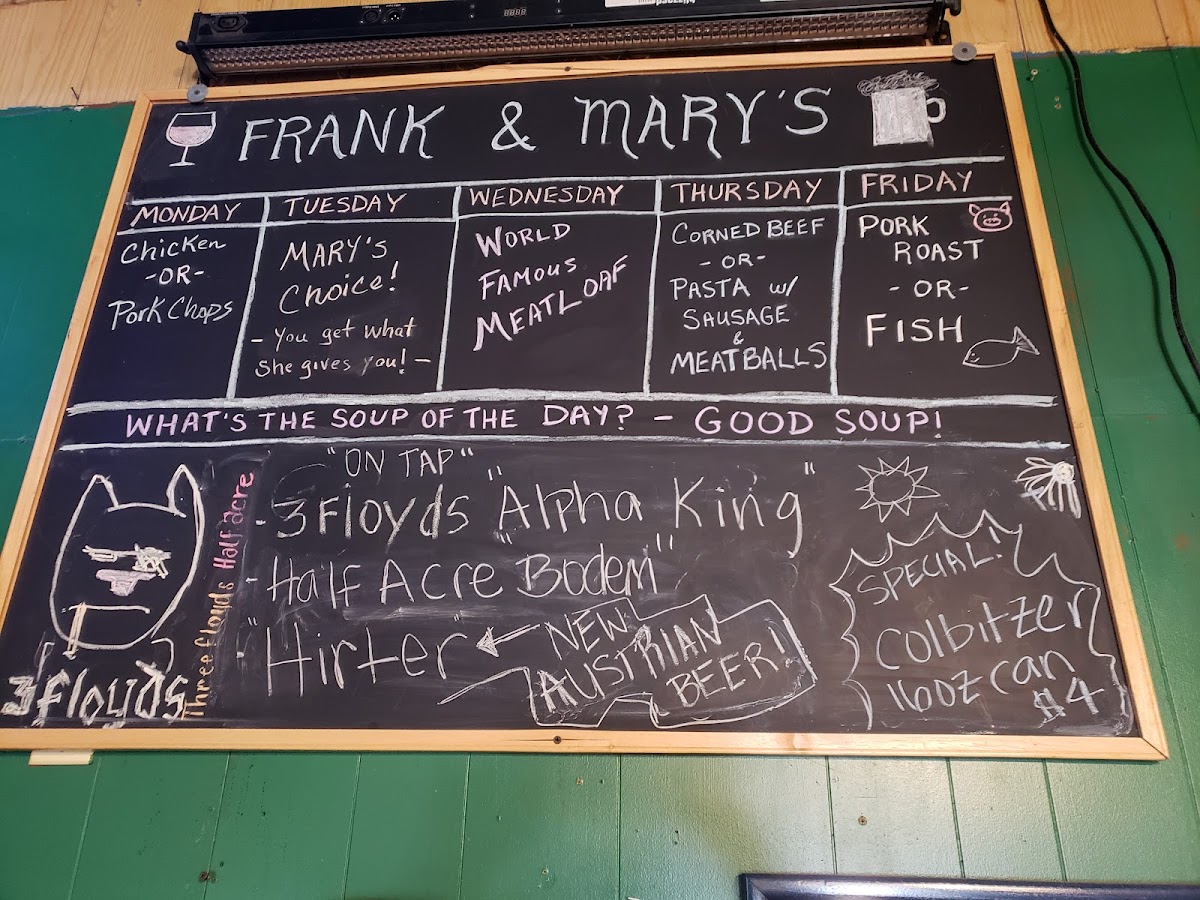 FRANK & MARY'S
MONDAY
Chicken
-OR-
Pork Chops
TUESDAY
MARY'S
Choice!
- You get what
She gives you! -
WEDNESDAY
WORLD
FAMOUS
MEATLOAF
THURSDAY
CORNED BEEF
- OR -
PASTA w/
SAUSAGE
&
MEATBALLS
FRIDAY
PORK
ROAST
- OR -
FISH
WHAT'S THE SOUP OF THE DAY? - GOOD SOUP!
3floyds
Three floyds Half acre
"ON TAP"
- 3 Floyds "Alpha King"
- Half Acre "Bodem"
- "Hirter"
NEW
AUSTRIAN
BEER!
SPECIAL!
Colbitzer
16oz can
$4